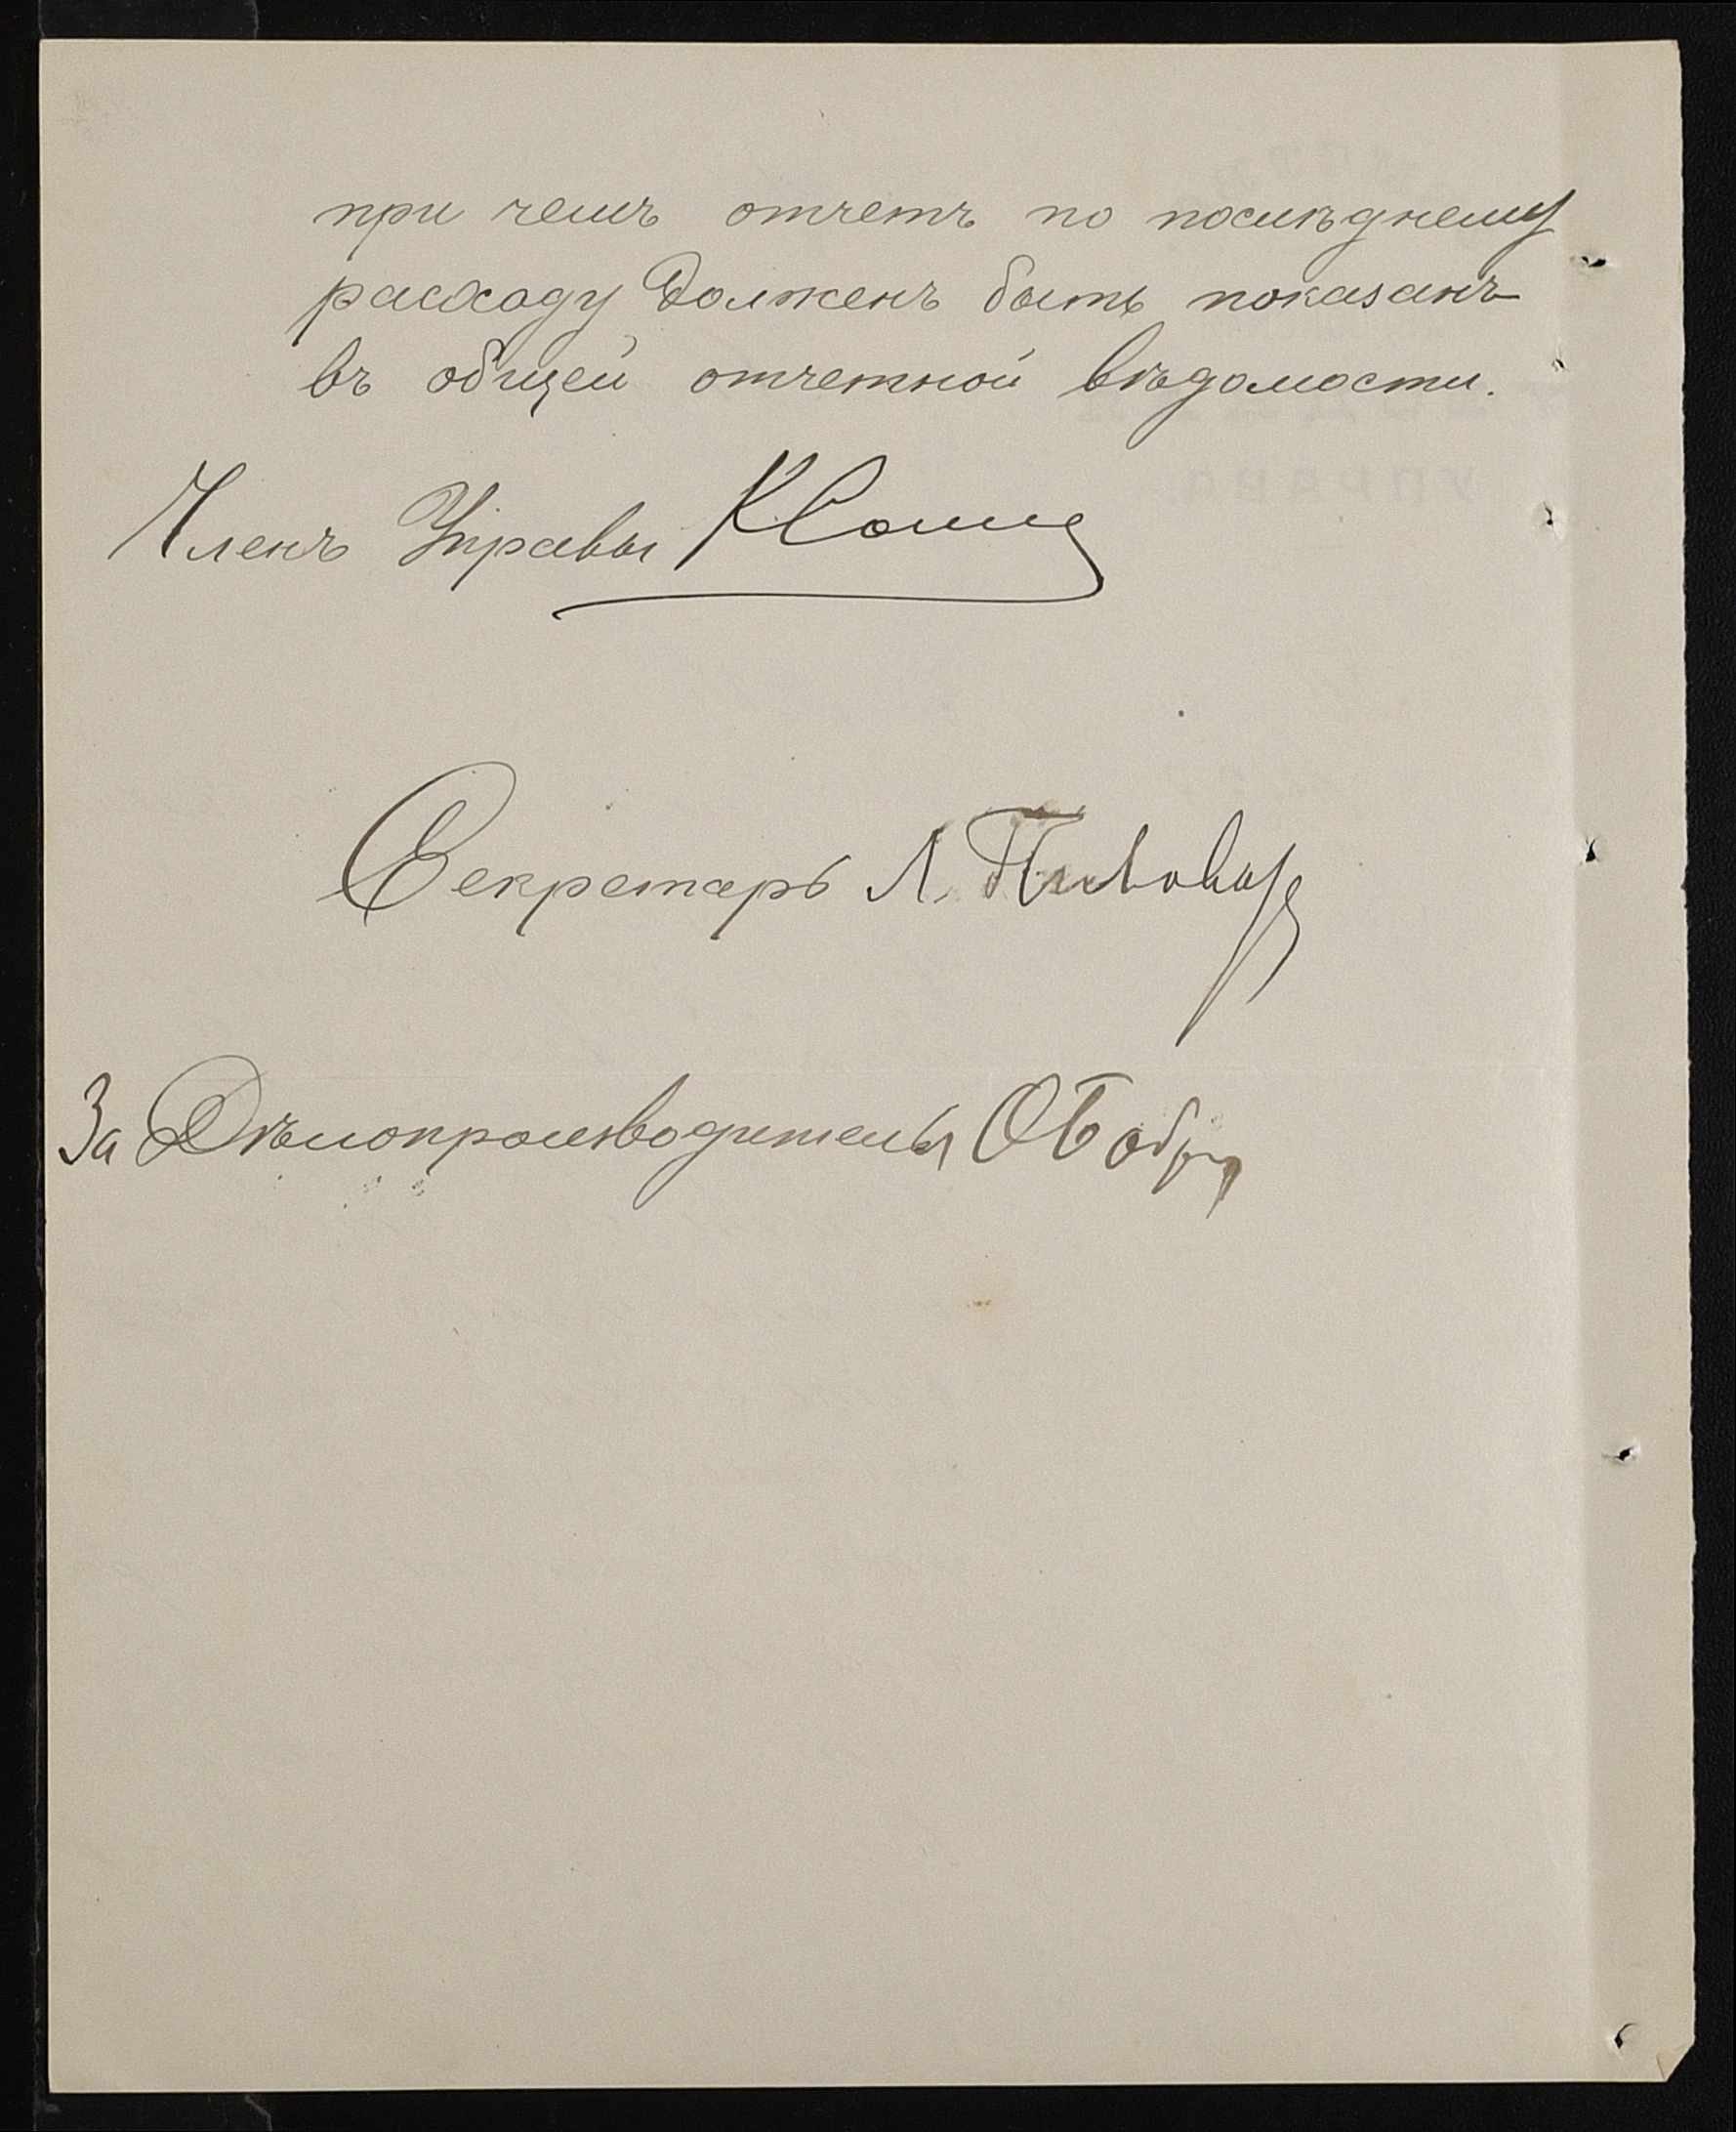 при чемъ отчетъ по послѣднему
расходу долженъ быть показанъ
въ общей отчетной вѣдомости.
Членъ Управы
Секретарь Л. Пивовар
За Дѣлопроизводителя